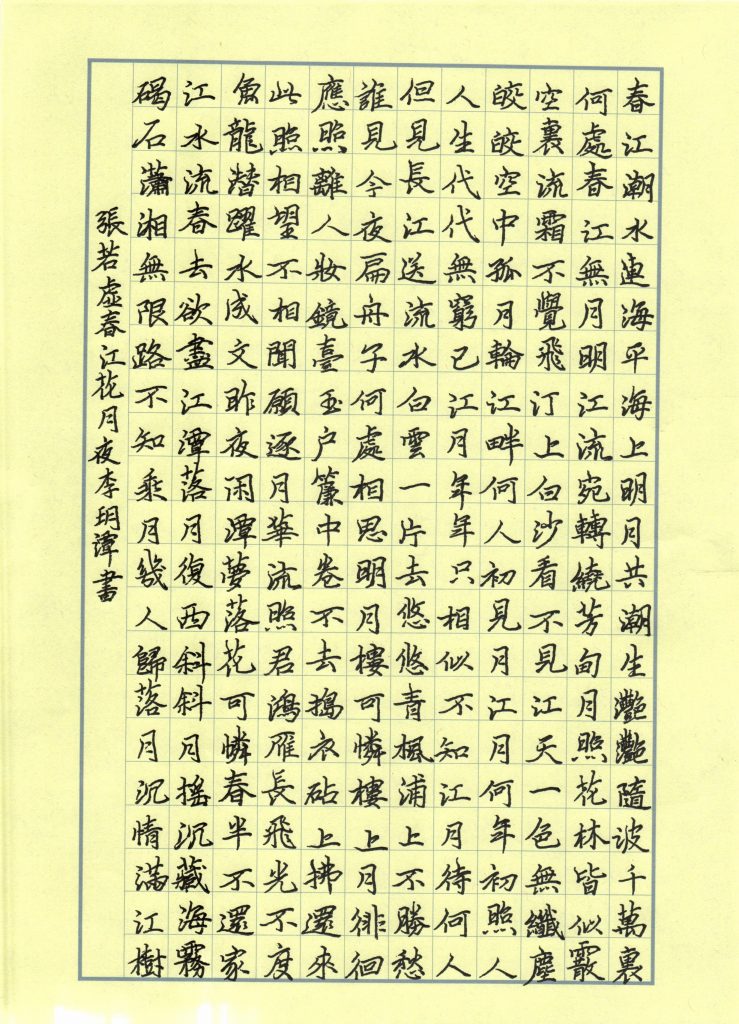 春江潮水連海平海上明月共潮生灧灧隨波千萬裏
何處春江無月明江流宛轉繞芳甸月照花林皆似霰
空裏流霜不覺飛汀上白沙看不見江天一色無纖塵
皎皎空中孤月輪江畔何人初見月江月何年初照人
人生代代無窮已江月年年只相似不知江月待何人
但見長江送流水白雲一片去悠悠青楓浦上不勝愁
誰見今夜扁舟子何處相思明月樓可憐樓上月徘徊
應照離人妝鏡臺玉户簾中卷不去搗衣砧上拂還來
此照相望不相聞願逐月華流照君鴻雁長飛光不度
魚龍潛躍水成文昨夜闲潭夢落花可憐春半不還家
江水流春去欲盡江潭落月復西斜斜月搖沉藏海霧
碣石瀟湘無限路不知乘月幾人歸落月沉情滿江樹
張若虛春江花月夜李玥潭書